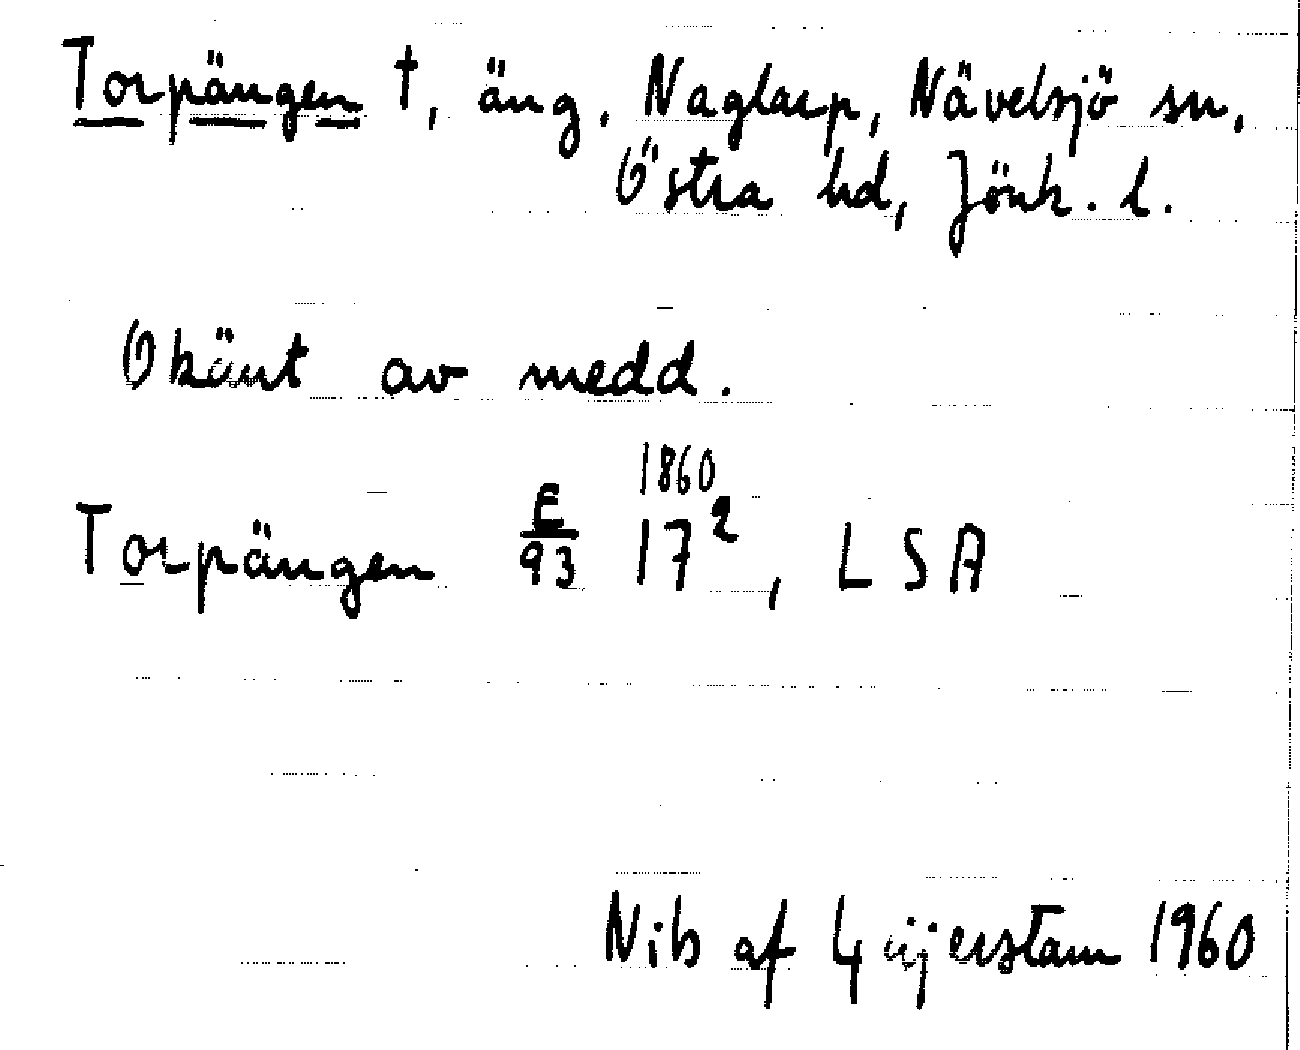 Torpängen †, äng. Naglarp, Nävelsjö sn,
Östra hd, Jönk. l.
Okänt av medd.
Torpängen E/93 1860 17², LSA
Nils af Geijerstam 1960